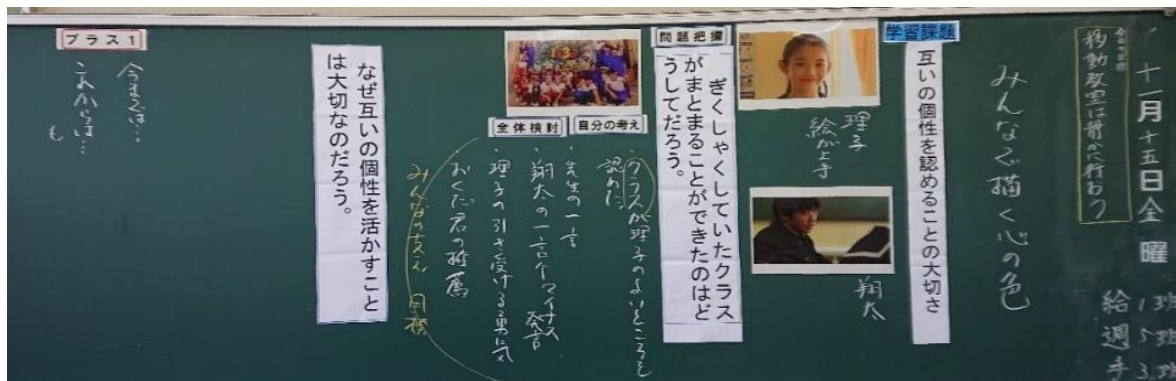 十一月十五日金曜
給 1班
週 5班
手 3班
今日の目標
移動教室は静かに行おう
みんなで描く心の色
学習課題
互いの個性を認めることの大切さ
理子
絵が上手
翔太
問題把握
ぎくしゃくしていたクラス
がまとまることができたのはど
うしてだろう。
自分の考え
全体検討
・クラスが理子のよいところを
認めた
・先生の一言
・翔太の一言
マイナス
発言
・理子の引き受ける勇気
おくだ君の推薦
みんなの支え
目標
なぜ互いの個性を活かすこと
は大切なのだろう。
プラス1
今までは…
これからは…
も